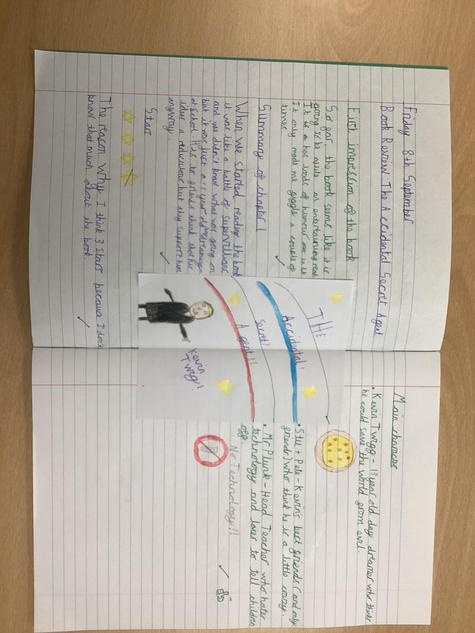 Friday 8th September
Book Review The Accidental Secret Agent
First impression of the book
So far, the book seems like it is
going to be quite an entertaining read
It only made me giggle a couple of
times
Summary of chapter 1
When we started reading the book
it was like a battle of supervillians
and we didn't know what was going on
but it was just a 13 year old
anyway
Stars
The reason why I think 3 stars because I don't
know that much about the book
THE
Accidental!
Secret!
Agent!!
Kevin
Twigg!
Main character
• Kevin Twigg - 13 year old day dreamer who thinks
he could save the world from evil.
• Stu + Pete - Kevin's best friends (and only
friends) who think he is a little crazy.
• Mr Plunk - Head Teacher who hates
technology and loves to tell children
off
No Technology!!